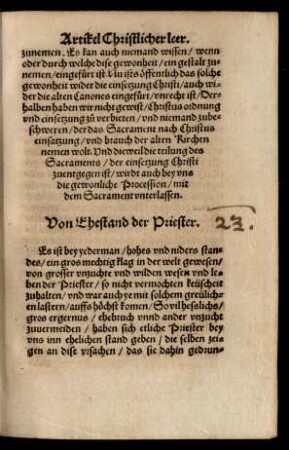 Artikel Christlicher leer.
zunemen. Es kan auch niemand wissen / wenn
oder durch welche dise gewonheit / ein gestalt zu-
nemen / eingefürt ist. Nu ists öffentlich das solche
gewonheit wider die einsetzung Christi / auch wi-
der die alten Canones eingefürt / vnrecht ist / Der-
halben haben wir nicht gewist / Christus ordnung
vnd einsetzung zu verbieten / vnd niemand zube-
schweren / der das Sacrament nach Christus
einsatzung / vnd brauch der alten Kirchen
nemen wolt. Vnd dieweil die teilung des
Sacraments / der einsetzung Christi
zuentgegen ist / wirdt auch bey vns
die gewonliche Procession / mit
dem Sacrament vnterlassen.
Von Ehestand der Priester. 23.
Es ist bey yederman / hohes vnd niders stan-
des / ein gros mechtig klag in der welt gewesen /
von grosser vnzucht vnd wilden wesen vnd le-
ben der Priester / so nicht vermochten keüscheit
zuhalten / vnd war auch ye mit solchem greülich-
en lastern / auffs höchst komen / So vil heslichs /
gros ergernus / ehebruch vnnd ander vnzucht
zuuermeiden / haben sich etliche Priester bey
vns inn ehelichen stand geben / die selben zei-
gen an dise vrsachen / das sie dahin gedrun-